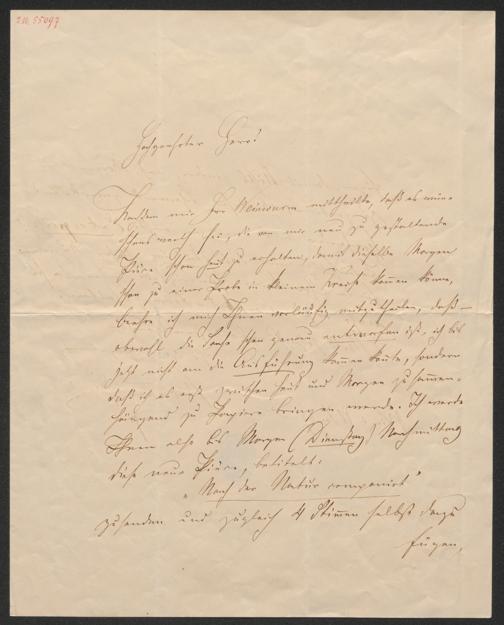 Z.N. 55097
Hochgeehrter Herr!
Nachdem mir Herr Weinwurm mittheilte, daß es wün-
schenswerth sei, die von mir neu zu gestaltende
Pièce schon heut zu erhalten, damit dieselbe Morgen
schon zu einer Probe in kleinem Kreise kommen könne,
beehre ich mich Ihnen vorläufig mitzutheilen, daß –
obwohl die Sache schon genau entworfen ist, ich bis
jetzt nicht an die Ausführung kommen konnte, sondern
daß ich es erst zwischen heut und Morgen zusammen-
hängend zu Papiere bringen werde. Ich werde
Ihnen also bis Morgen (Dienstag) Nachmittag
diese neue Pièce, betitelt:
„Nach der Natur componirt"
zusenden und zugleich 4 Stimmen selbst dazu
fügen,